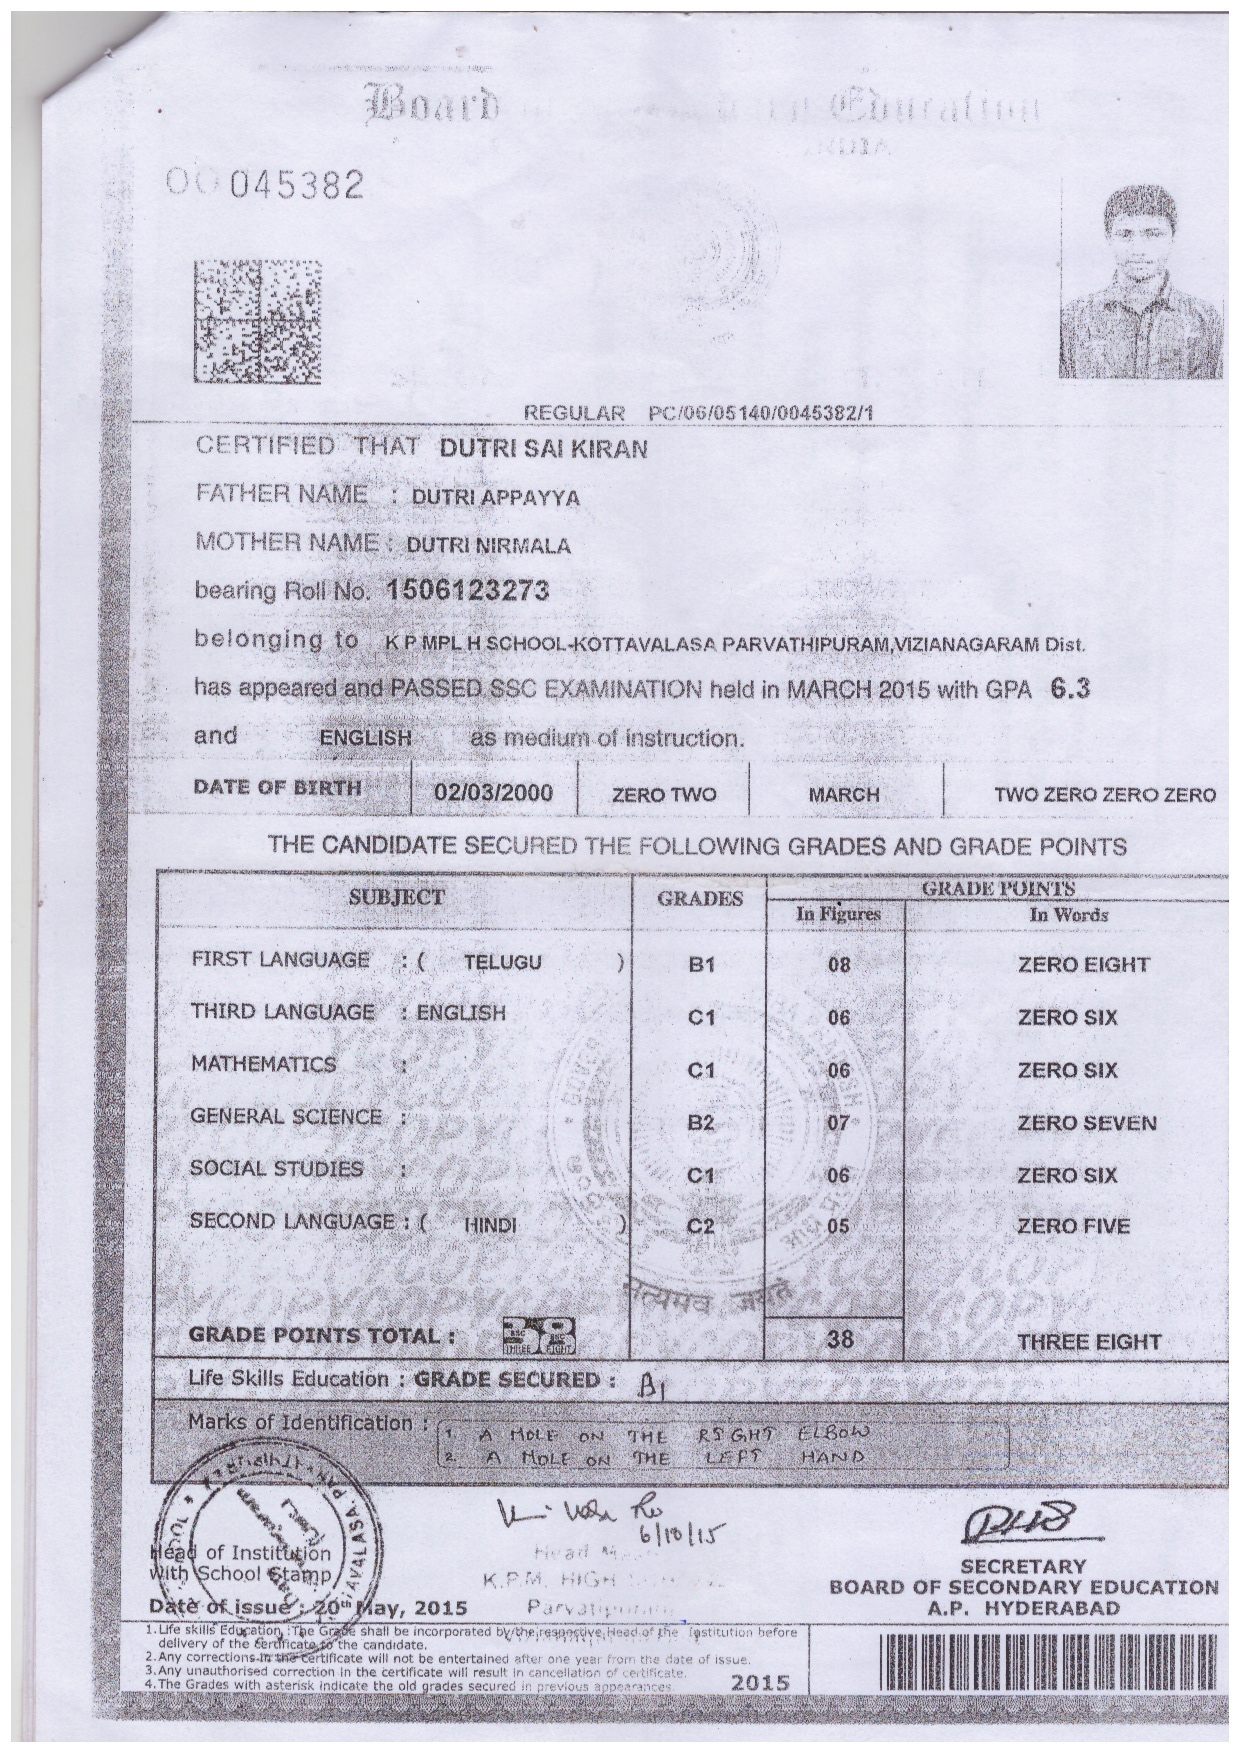 Board Education
045382
REGULAR PC/06/05140/0045382/1
CERTIFIED THAT DUTRI SAI KIRAN
FATHER NAME : DUTRI APPAYYA
MOTHER NAME : DUTRI NIRMALA
bearing Roll No. 1506123273
belonging to K P MPL H SCHOOL-KOTTAVALASA PARVATHIPURAM,VIZIANAGARAM Dist.
has appeared and PASSED SSC EXAMINATION held in MARCH 2015 with GPA 6.3
and ENGLISH as medium of instruction.
DATE OF BIRTH 02/03/2000 ZERO TWO MARCH TWO ZERO ZERO ZERO
THE CANDIDATE SECURED THE FOLLOWING GRADES AND GRADE POINTS
SUBJECT GRADES GRADE POINTS
In Figures In Words
FIRST LANGUAGE : ( TELUGU ) B1 08 ZERO EIGHT
THIRD LANGUAGE : ENGLISH C1 06 ZERO SIX
MATHEMATICS : C1 06 ZERO SIX
GENERAL SCIENCE : B2 07 ZERO SEVEN
SOCIAL STUDIES : C1 06 ZERO SIX
SECOND LANGUAGE : ( HINDI ) C2 05 ZERO FIVE
सत्यमेव जयते
GRADE POINTS TOTAL : 38 38 THREE EIGHT
Life Skills Education : GRADE SECURED : A1
Marks of Identification :
1. A MOLE ON THE RIGHT ELBOW
2. A MOLE ON THE LEFT HAND
6/10/15
Head of Institution
With School Stamp
Head
K.P.M. HIGH
Parvatipuram
Date of issue : 20th May, 2015
SECRETARY
BOARD OF SECONDARY EDUCATION
A.P. HYDERABAD
1. Life skills Education :The Grade shall be incorporated by the respective Head of the Institution before
delivery of the certificate to the candidate.
2. Any corrections in the certificate will not be entertained after one year from the date of issue.
3. Any unauthorised correction in the certificate will result in cancellation of certificate.
4. The Grades with asterisk indicate the old grades secured in previous appearances.
2015